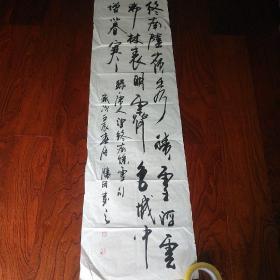 終南陰嶺秀積雪浮雲
端林表明霽色城中
增暮寒
錄唐人望終南餘雪句
歲次壬辰春月